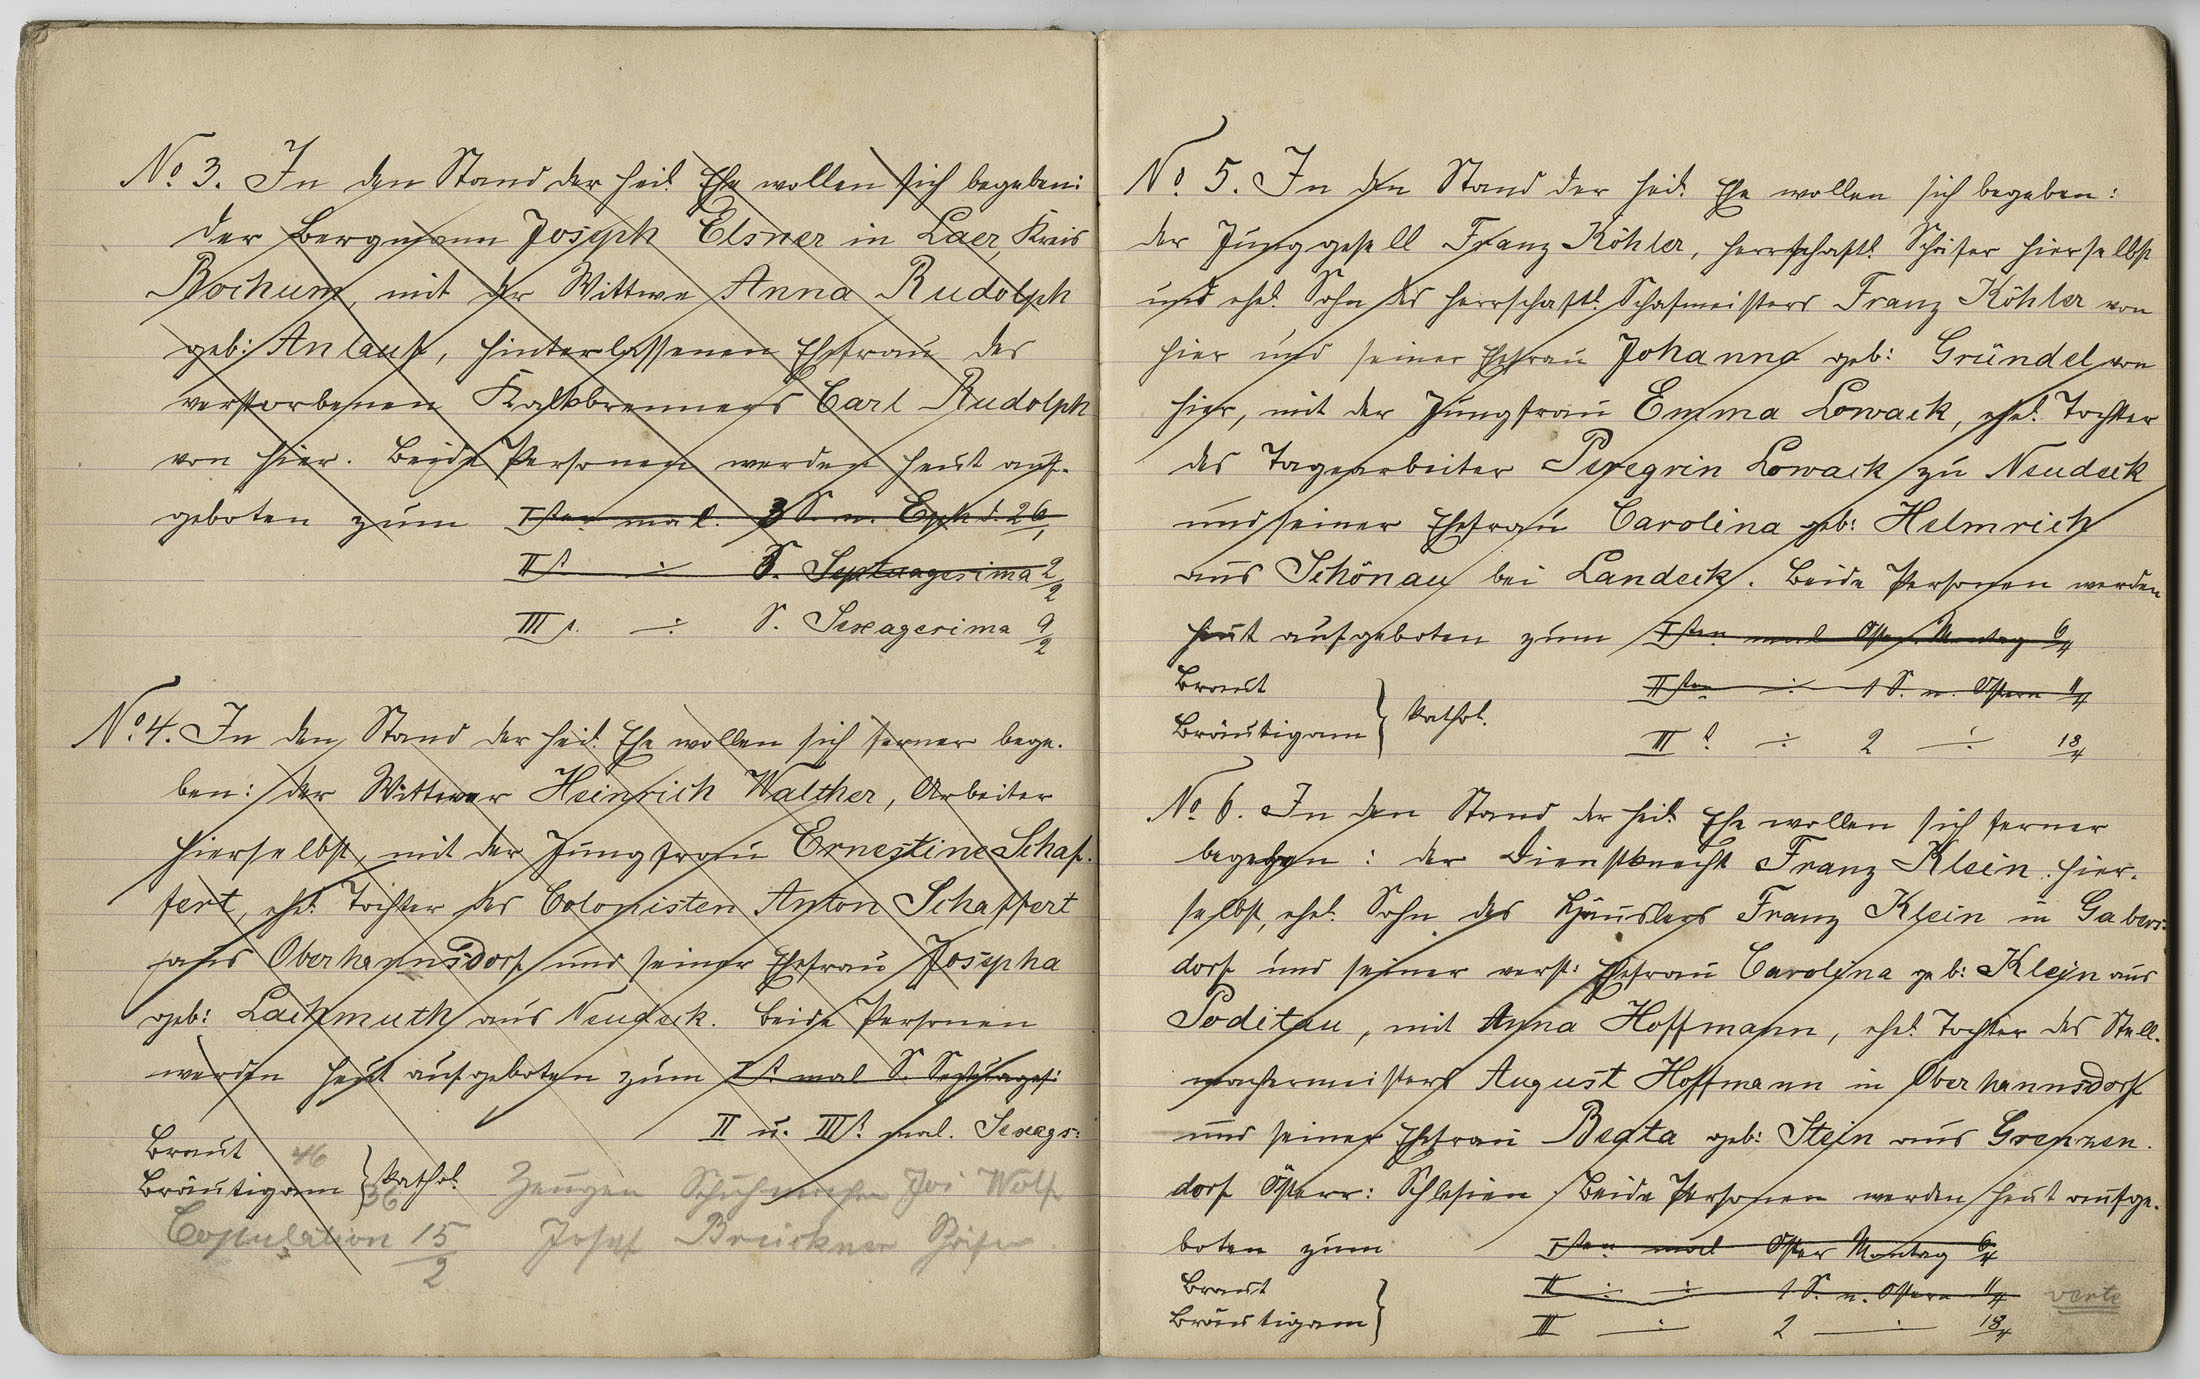 No. 3. In den Stand der heil. Ehe wollen sich begeben:
der Bergmann Joseph Elsner in Laer, Kreis
Bochum, mit der Wittwe Anna Rudolph
geb: Anlauf, hinterlassenen Ehefrau des
verstorbenen Kalkbrenners Carl Rudolph
von hier. Beide Personen werden heut auf-
geboten zum Isten mal. 3 S. n. Eph. d. 26/1
IIt. ÷ S. Septuagesima 2/2
IIIt. ÷ S. Sexagesima 9/2
No. 4. In den Stand der heil. Ehe wollen sich ferner bege-
ben: der Wittwer Heinrich Walther, Arbeiter
hierselbst, mit der Jungfrau Ernestine Schaf-
fert, ehel. Tochter des Colonisten Anton Schaffert
aus Oberhannsdorf und seiner Ehefrau Josepha
geb: Lachmuth aus Neudeck. Beide Personen
werden heut aufgeboten zum It. mal S. Septuages:
II u. IIIt. mal. Sexags:
Braut 46
Bräutigam } kathol. 36
Zeugen Schuhmacher Jos Wolf
Copulation 15/2 Josef Brückner Schäfer
No. 5. In den Stand der heil. Ehe wollen sich begeben:
der Junggesell Franz Köhler, herrschaftl. Schäfer hierselbst
und ehel. Sohn des herrschaftl. Schafmeisters Franz Köhler von
hier und seiner Ehefrau Johanna geb: Gründel von
hier, mit der Jungfrau Emma Lowack, ehel. Tochter
des Tagearbeiter Peregrin Lowack zu Neudeck
und seiner Ehefrau Carolina geb: Helmrich
aus Schönau bei Landeck. Beide Personen werden
heut aufgeboten zum Isten mal Oster Montag 6/4
Braut IIten ÷ 1 S. n. Ostern 11/4
Bräutigam } kathol. III t. ÷ 2 ÷ 18/4
No 6. In den Stand der heil. Ehe wollen sich ferner
begeben: der Dienstknecht Franz Klein hier-
selbst, ehel. Sohn des Häuslers Franz Klein in Gabers-
dorf und seiner verst: Ehefrau Carolina geb: Klein aus
Poditau, mit Anna Hoffmann, ehel. Tochter des Stell-
machermeisters August Hoffmann in Oberhannsdorf
und seiner Ehefrau Beata geb: Stein aus Grenzen-
dorf Österr: Schlesien. Beide Personen werden heut aufge-
boten zum Isten mal Oster Montag 6/4
Braut II ÷ ÷ 1 S. n. Ostern 11/4 verte
Bräutigam } III ÷ 2 ÷ 18/4